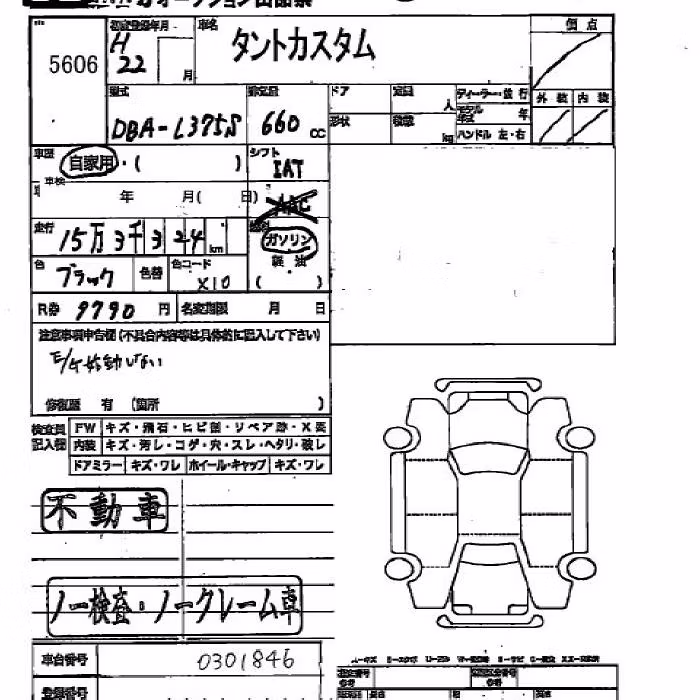 5606
初度登録年月 H22 月
車名 タントカスタム
評点
外装 内装
型式 DBA-L375S
排気量 660 cc
ドア
形状
定員 人
積載 kg
ディーラー・並行
モデル年式 年
ハンドル 左・右
車歴 自家用・( )
シフト IAT
車検 年 月( 日)
AAC
走行 15万3千324 km
燃料 ガソリン 軽油 ( )
色 ブラック 色替 色コード X10
R券 9790 円 名変期限 月 日
注意事項申告欄(不具合内容等は具体的に記入して下さい)
E/G始動しない
修復歴 有 (箇所 )
検査員記入欄
FW キズ・飛石・ヒビ割・リペア跡・X要
内装 キズ・汚レ・コゲ・穴・スレ・ヘタリ・破レ
ドアミラー キズ・ワレ ホイール・キャップ キズ・ワレ
不動車
ノー検査・ノークレーム車
車台番号 0301846
登録番号